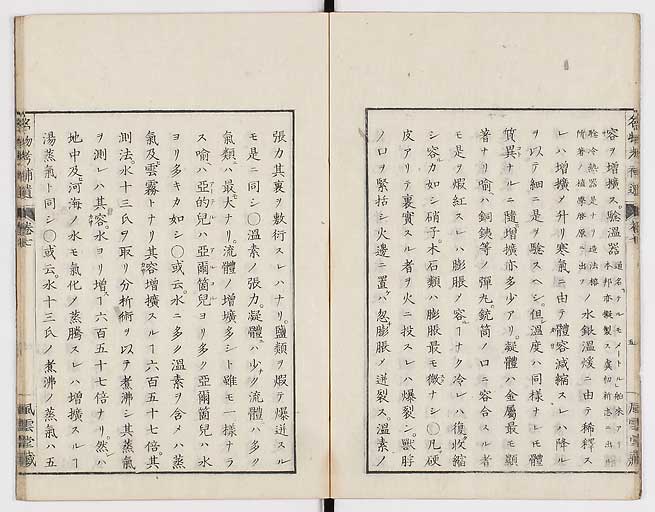 容ヲ増擴ス。騐温器
道名テルモメートル舶来アリ
本邦亦擬製ス眞切折志ニ出
騐冷熱器是ナリ造法榕
隋著ノ植學啓原ニ出ツ
ノ水銀温煖ニ由テ稀釋ス
レハ増擴ノ升リ寒氣ニ由テ體容減縮スレハ降ル
ヲ以テ細ニ是ヲ騐スヘシ。但温度ハ同様ナレモ體
質異ナルニ隨増擴亦多少アリ。凝體ハ金屬最モ顯
著ナリ喩ハ銅鐵等ノ彈丸。銃筒ノ口ニ容合スル者
モ是ヲ煆紅スレハ膨脹メ容ーナク冷レハ復收縮
シ容カ如シ硝子。木石類ハ膨脹最モ微ナシ〇凡硬
皮アリテ裏實スル者ヲ火ニ投スレハ爆裂ン。獸脬
ノ口ヲ緊括シ火邊ニ置ハ忽膨脹メ迸裂ス。温素ノ
張力其裏ヲ敷衍スレハナリ。鹽類ヲ煆テ爆迸スル
モ是ニ同シ〇温素ノ張力。凝體ハ少ク流體ハ多ク
氣類ハ最大ナリ。流體ノ増壙多シト雖モ一様ナラ
ス喩ハ亞的兒ハ亞爾箇兒ヨリ多ク亞爾箇兒ハ水
ヨリ多キカ如シ〇或云。水ニ多ク温素ヲ含メハ蒸
氣及雲霧トナリ其容増擴スルー六百五十七倍。其
測法。水十三氏ヲ取リ分析術ヲ以テ煮沸シ其蒸氣
ヲ測レハ其容。水ヨリ増ー六百五十七倍ナリ。然ハ
地中及河海ノ水モ氣化メ蒸騰スレハ増擴スルー
湯蒸氣ト同シ〇或云。水十三氏ノ煮沸ノ蒸氣ハ五
名物考補遺
卷七
風雲堂藏